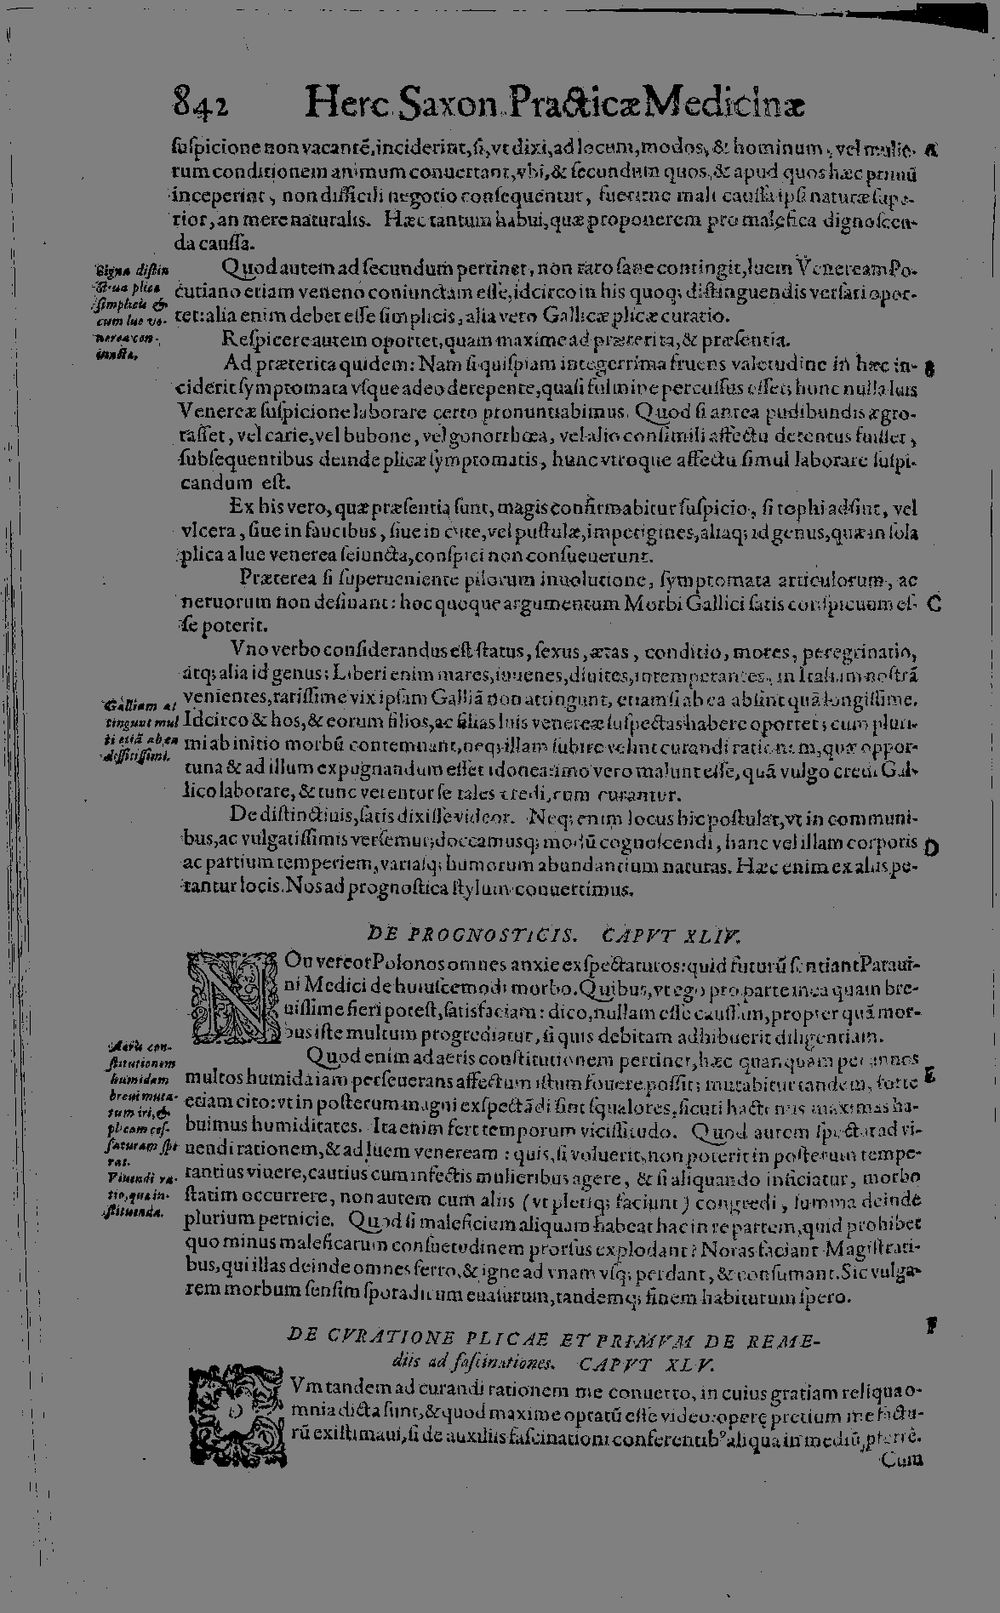 842 Herc. Saxon. Practicæ Medicinæ
suspicione non vacantē, inciderint, si, vt dixi, ad locum, modos, & hominum, vel mulie- A
rum conditionem animum conuertant, vbi, & secundum quos, & apud quos hæc primū
inceperint, non difficili negotio consequentur, fuerintne mali caussa ipsi naturæ supe-
rior, an mere naturalis. Hæc tantum habui, quæ proponerem pro malefica dignoscen-
da caussa.
Signa distin
simplicis &
cum lue ve-
nerea con-
iuncta.
Quod autem ad secundum pertinet, non raro sane contingit, luem Veneream Po-
cutiano etiam veneno coniunctam esse, idcirco in his quoq; distinguendis versari opor-
tet: alia enim debet esse simplicis, alia vero Gallicæ plicæ curatio.
Respicere autem oportet, quam maxime ad præterita, & præsentia.
Ad præterita quidem: Nam si quispiam integerrima fruens valetudine in hæc in- B
ciderit symptomata vsque adeo derepente, quasi fulmine percussus esset; hunc nulla luis
Venereæ suspicione laborare certo pronuntiabimus. Quod si antea pudibundis ægro-
tasset, vel carie, vel bubone, vel gonorrhœa, vel alio consimili affectu detentus fuisset,
subsequentibus deinde plicæ symptomatis, hunc vtroque affectu simul laborare suspi-
candum est.
Ex his vero, quæ præsentia sunt, magis confirmabitur suspicio, si tophi adsint, vel
vlcera, siue in faucibus, siue in cute, vel pustulæ, impetigines, aliaq; id genus, quæ in sola
plica a lue venerea seiuncta, conspici non consueuerunt.
Præterea si superueniente pilorum inuolutione, symptomata articulorum, ac
neruorum non desinant: hoc quoque argumentum Morbi Gallici satis conspicuum es- C
se poterit.
Vno verbo considerandus est status, sexus, ætas, conditio, mores, peregrinatio,
atq; alia id genus: Liberi enim mares, iuuenes, diuites, intemperantes, in Italiam nostrā
Galliam at
tingunt mul
ti etiā ab ea
dissitissimi.
venientes, rarissime vix ipsam Galliā non attingunt, etiamsi ab ea absint quā longissime.
Idcirco & hos, & eorum filios, ac filias luis venereæ suspectas habere oportet; cum pluri-
mi ab initio morbū contemnant, neq; illam subire velint curandi rationem, quæ oppor-
tuna & ad illum expugnandum esset idonea: imo vero malunt esse, quā vulgo credi Gal-
lico laborare, & tunc verentur se tales credi, cum curantur.
De distinctiuis, satis dixisse videor. Neq; enim locus hic postulat, vt in communi-
bus, ac vulgatissimis versemur; doceamusq; modū cognoscendi, hanc vel illam corporis D
ac partium temperiem, variasq; humorum abundantium naturas. Hæc enim ex aliis pe-
tantur locis. Nos ad prognostica stylum conuertimus.
DE PROGNOSTICIS. CAPVT XLIV.
NOn vereor Polonos omnes anxie exspectaturos: quid futurū sentiant Pataui-
ni Medici de huiuscemodi morbo. Quibus, vt ego pro parte mea quam bre-
uissime fieri potest, satisfaciam: dico, nullam esse caussam, propter quā mor-
bus iste multum progrediatur, si quis debitam adhibuerit diligentiam.
Aeris con-
stitutionem
humidam
breui muta-
tum iri, &
plicam ces-
saturam spe
rat.
Viuendi ra-
tio, quæ in-
stituenda.
Quod enim ad aeris constitutionem pertinet, hæc quanquam per annos
multos humida iam perseuerans affectum istum fouere possit; mutabitur tandem, forte E
etiam cito: vt in posterum magni exspectādi sint squalores, sicuti hactenus maximas ha-
buimus humiditates. Ita enim fert temporum vicissitudo. Quod autem spectat ad vi-
uendi rationem, & ad luem veneream: quis, si voluerit, non poterit in posterum tempe-
rantius viuere, cautius cum infectis mulieribus agere, & si aliquando inficiatur, morbo
statim occurrere, non autem cum aliis (vt pleriq; faciunt) congredi, summa deinde
plurium pernicie. Quod si maleficium aliquam habeat hac in re partem, quid prohibet
quo minus maleficarum consuetudinem prorsus explodant? Notas faciant Magistrati-
bus, qui illas deinde omnes ferro, & igne ad vnam vsq; perdant, & consumant. Sic vulga-
rem morbum sensim sporadicum euasurum, tandemq; finem habiturum spero.
F
DE CVRATIONE PLICAE ET PRIMVM DE REME-
diis ad fascinationes. CAPVT XLV.
CVm tandem ad curandi rationem me conuerto, in cuius gratiam reliqua o-
mnia dicta sunt, & quod maxime optatū esse video: operę pretium me factu-
rū existimaui, si de auxiliis fascinationi conferentibꝰ aliqua in mediū
Cum